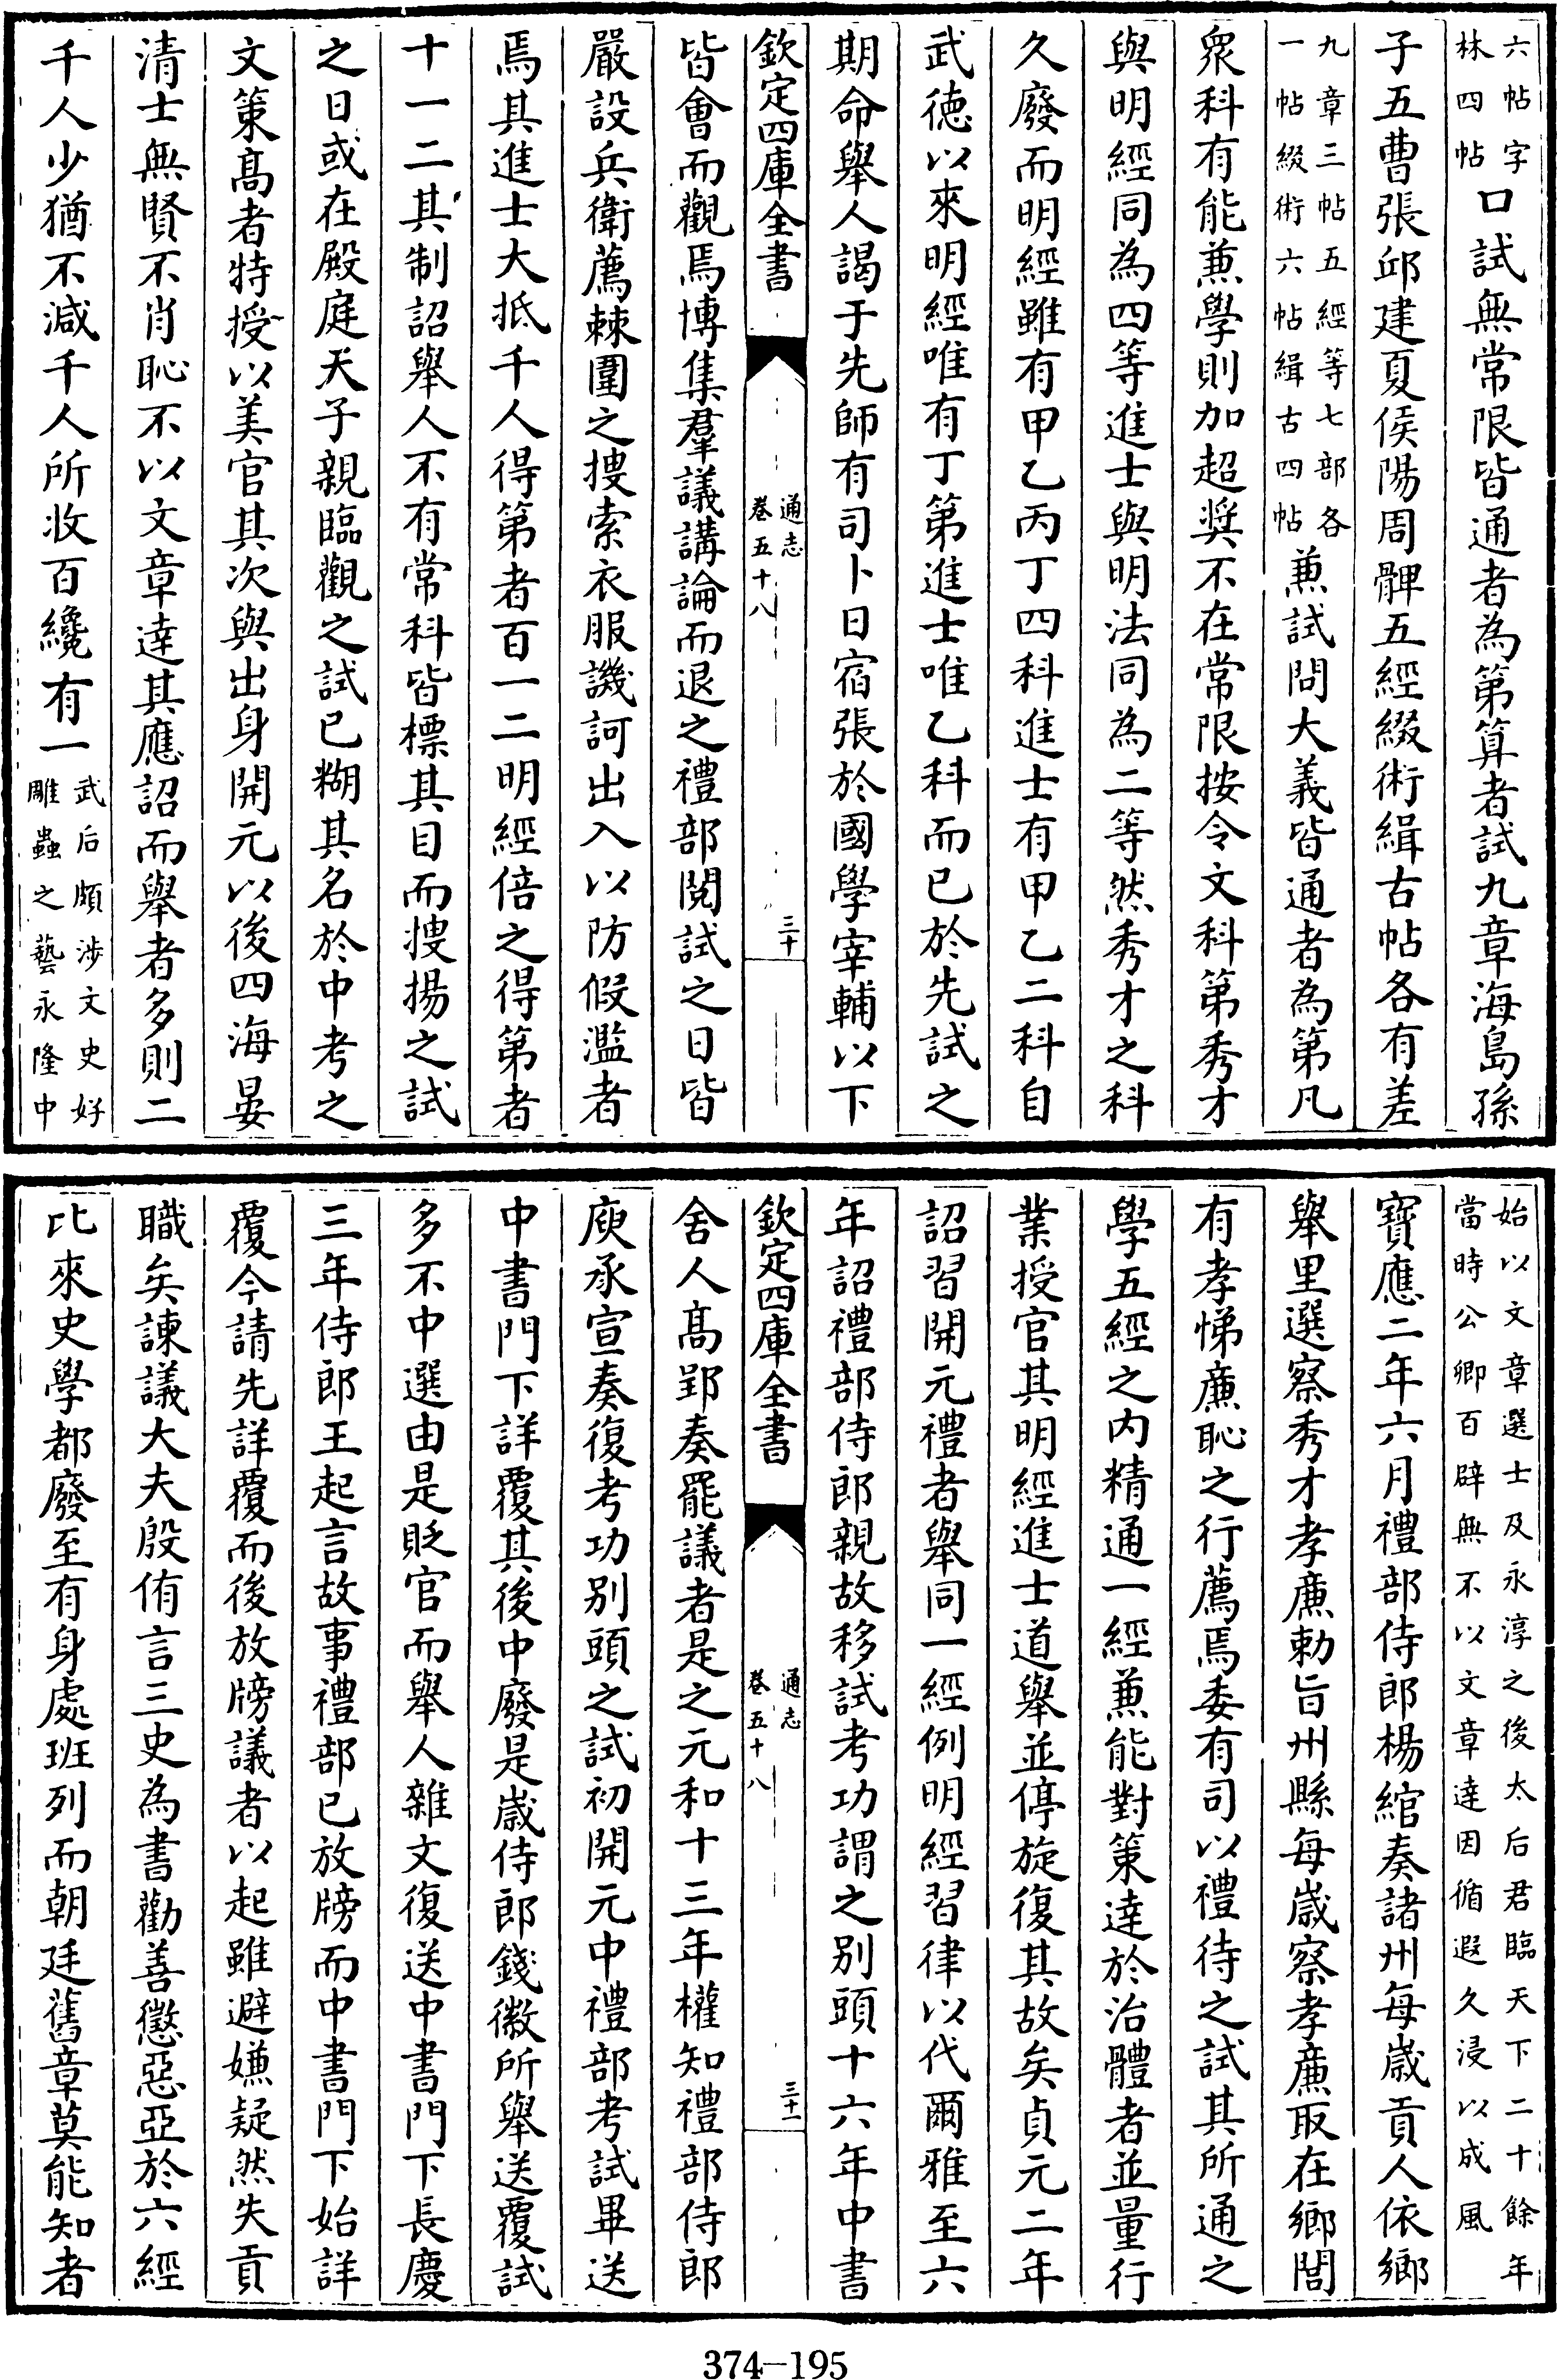 六帖字林四帖口試無常限皆通者為第算者試九章海島孫
子五曹張邱建夏侯陽周髀五經綴術緝古帖各有差
九章三帖五經等七部各一帖綴術六帖緝古四帖兼試問大義皆通者為第凡
衆科有能兼學則加超奬不在常限按令文科第秀才
與明經同為四等進士與明法同為二等然秀才之科
久廢而明經雖有甲乙丙丁四科進士有甲乙二科自
武徳以來明經唯有丁第進士唯乙科而已於先試之
期命舉人謁于先師有司卜日宿張於國學宰輔以下
欽定四庫全書 通志卷五十八 三十
皆會而觀焉博集羣議講論而退之禮部閲試之日皆
嚴設兵衛薦棘圍之搜索衣服譏訶出入以防假濫者
焉其進士大抵千人得第者百一二明經倍之得第者
十一二其制詔舉人不有常科皆標其目而搜揚之試
之日或在殿庭天子親臨觀之試已糊其名於中考之
文策髙者特授以美官其次與出身開元以後四海晏
清士無賢不肖恥不以文章達其應詔而舉者多則二
千人少猶不減千人所收百纔有一武后頗涉文史好雕蟲之藝永隆中
始以文章選士及永淳之後太后君臨天下二十餘年當時公卿百辟無不以文章達因循遐久浸以成風
寶應二年六月禮部侍郎楊綰奏諸州每嵗貢人依鄉
舉里選察秀才孝廉勅旨州縣每嵗察孝廉取在鄉閭
有孝悌廉恥之行薦焉委有司以禮待之試其所通之
學五經之内精通一經兼能對策達於治體者並量行
業授官其明經進士道舉並停旋復其故矣貞元二年
詔習開元禮者舉同一經例明經習律以代爾雅至六
年詔禮部侍郎親故移試考功謂之别頭十六年中書
欽定四庫全書 通志卷五十八 三十一
舍人髙郢奏罷議者是之元和十三年權知禮部侍郎
庾承宣奏復考功别頭之試初開元中禮部考試畢送
中書門下詳覆其後中廢是嵗侍郎錢徽所舉送覆試
多不中選由是貶官而舉人雜文復送中書門下長慶
三年侍郎王起言故事禮部已放牓而中書門下始詳
覆今請先詳覆而後放牓議者以起雖避嫌疑然失貢
職矣諫議大夫殷侑言三史為書勸善懲惡亞於六經
比來史學都廢至有身處班列而朝廷舊章莫能知者
374-195